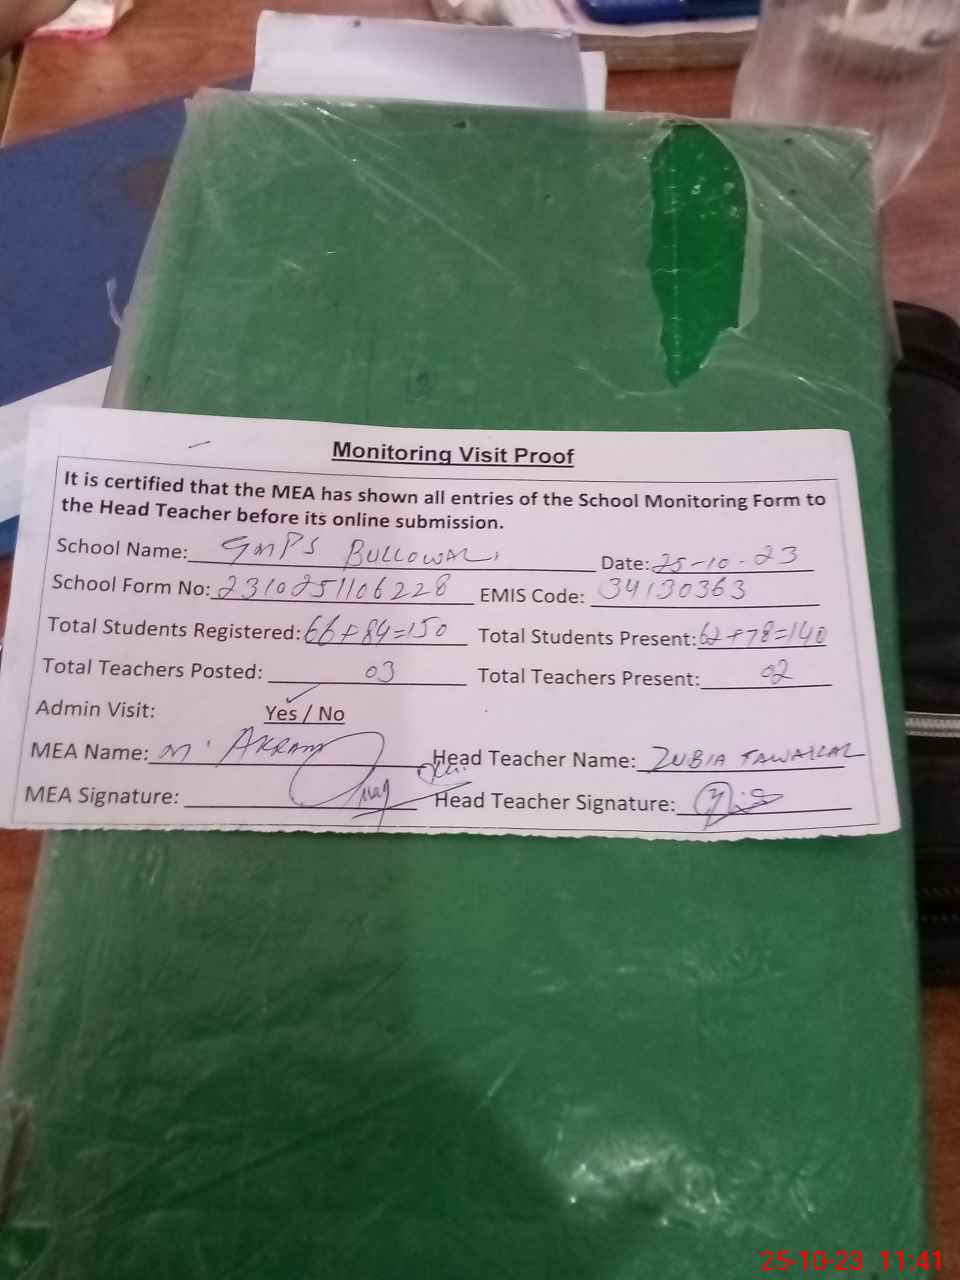 Monitoring Visit Proof
It is certified that the MEA has shown all entries of the School Monitoring Form to
the Head Teacher before its online submission.
School Name: GMPS BULLOWAL Date: 25-10-23
School Form No: 2310251106228 EMIS Code: 34130363
Total Students Registered: 66+84=150 Total Students Present: 62+78=140
Total Teachers Posted: 03 Total Teachers Present: 02
Admin Visit: Yes / No
MEA Name: M. AKRAM Head Teacher Name: ZUBIA
MEA Signature: Head Teacher Signature:
25-10-23 11:41